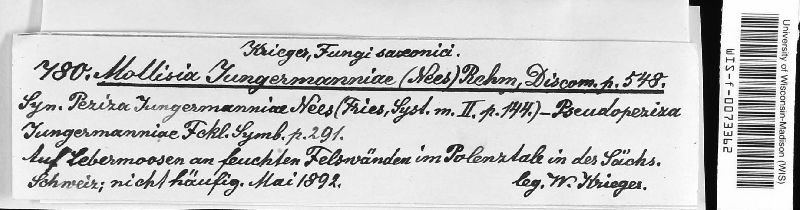 Krieger, Fungi saxonici.
780. Mollisia Jungermanniae (Nees) Rehm, Discom. p. 548.
Syn. Peziza Jungermanniae Nees (Fries, Syst. m. II. p. 144.) – Pseudopeziza
Jungermanniae Fckl. Symb. p. 291.
Auf Lebermoosen an feuchten Felswänden im Polenztale in der Sächs.
Schweiz; nicht häufig. Mai 1892. leg. W. Krieger.
University of Wisconsin-Madison (WIS)
WIS-f-0073362